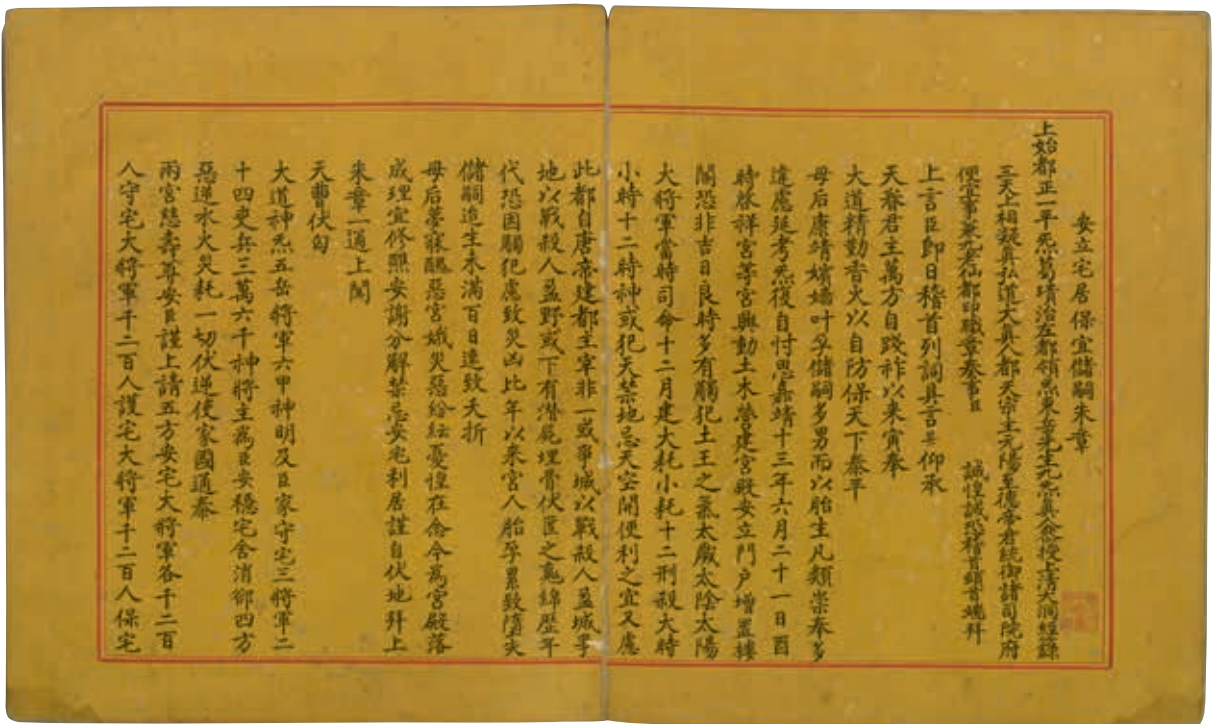 安立宅居保宜儲嗣朱章
上始都正一平炁葛璝治左都領炁東岳先生炁真人僉授上清大洞經籙
三天上相凝真弘道大真人都天帝主元陽至德帝君統御諸司院府
便宜事兼九老仙都印職章奏事臣 誠惶誠恐稽首頓首魂拜
上言臣即日稽首列詞具言臣仰承
天眷君主萬方自踐祚以來寅奉
大道精勤香火以自防保天下泰平
母后康靖嬪嬙叶孕儲嗣多男而以胎生凡類崇奉多
違慮延考炁後自忖思嘉靖十三年六月二十一日酉
時啟祥宮等宮興動土木營建宮殿安立門户增置樓
閣恐非吉日良時多有觸犯土王之氣太歲太陰太陽
大將軍當時司命十二月建大耗小耗十二刑殺大時
小時十二時神或犯天禁地忌天空開便利之宜又慮
此都自唐帝建都主宰非一或爭城以戰殺人盈城爭
地以戰殺人盈野或下有潛屍埋骨伏匿之鬼綿歷年
代恐因觸犯慮致災凶比年以來宮人胎孕累致墮失
儲嗣造生未滿百日遽致夭折
母后夢寐醜惡宮娥災惡紛紜憂惶在念今為宮殿落
成理宜修醮安謝分解禁忌安宅利居謹自伏地拜上
朱章一通上聞
天曹伏匄
大道神炁五岳將軍六甲神明及臣家守宅三將軍二
十四吏兵三萬六千神將主為臣安穩宅舍消卻四方
惡逆水火災耗一切伏逆使家國通泰
兩宮慈壽尊安臣謹上請五方安宅大將軍各千二百
人守宅大將軍千二百人護宅大將軍千二百人保宅